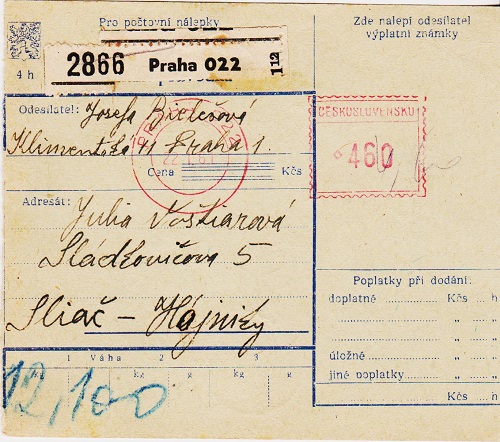 Pro poštovní nálepky
Zde nalepí odesílatel
výplatní známky
4 h
2866 Praha 022 1 12
Odesílatel: Josefa
Klimentská 41 Praha 1.
Cena Kčs
ČESKOSLOVENSKO
460
Adresát: Julia Voštiarová
Sládkovičova 5
Sliač - Hájniky
Poplatky při dodání:
doplatné Kčs h
" "
" "
úložné " "
jiné poplatky " "
Kčs h
1 Váha 2 3
kg g kg g
12,100